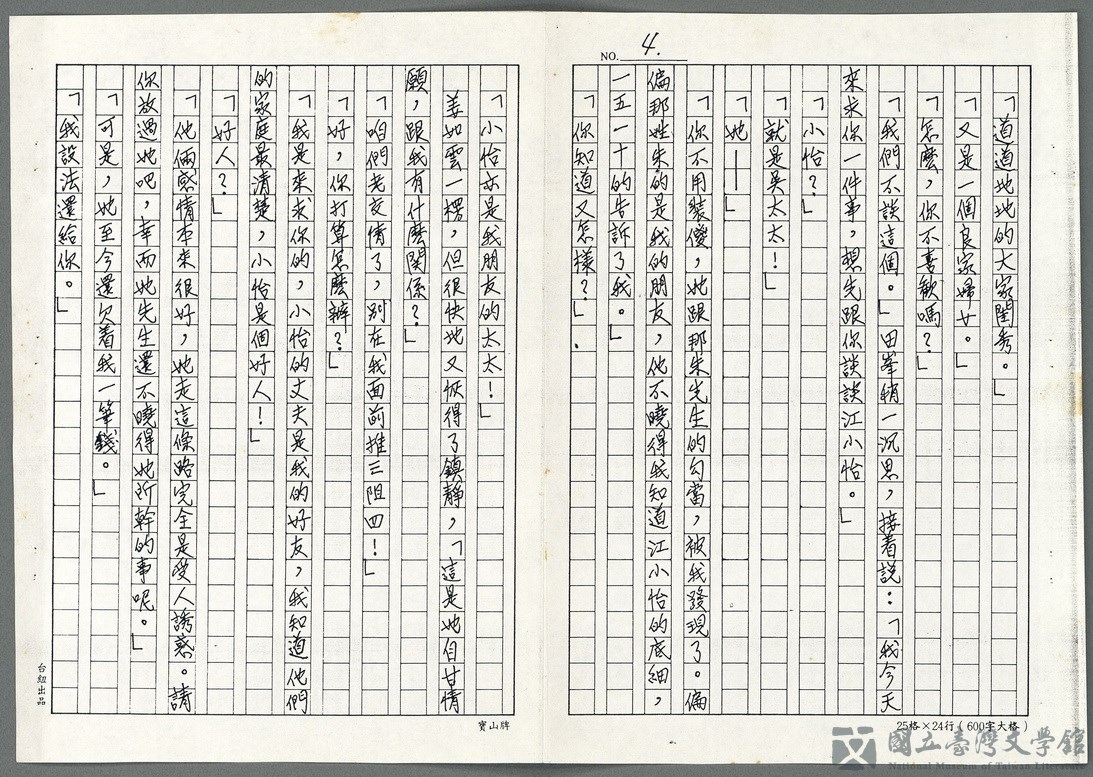 NO. 4.
「道道地地的大家閨秀。」
「又是一個良家婦女。」
「怎麼，你不喜歡嗎？」
「我們不談這個。」田峯稍一沉思，接着說：「我今天
來求你一件事，想先跟你談談江小怡。」
「小怡？」
「就是吳太太！」
「她——」
「你不用裝傻，她跟那朱先生的勾當，被我發現了。偏
偏那姓朱的是我的朋友，他不曉得我知道江小怡的底細，
一五一十的告訴了我。」
「你知道又怎樣？」
「小怡亦是我朋友的太太！」
姜如雲一楞，但很快地又恢得了鎮靜，「這是她自甘情
願，跟我有什麼関係？」
「咱們老交情了，別在我面前推三阻四！」
「好，你打算怎麼辦？」
「我是來求你的，小怡的丈夫是我的好友，我知道他們
的家庭最清楚，小怡是個好人！」
「好人？」
「他倆感情本來很好，她走這條路完全是受人誘惑。請
你放過她吧，幸而她先生還不曉得她所幹的事呢。」
「可是，她至今還欠着我一筆錢。」
「我設法還給你。」
25格×24行（600字大格）
寶山牌
台紐出品
國立臺灣文學館
National Museum of Taiwan Literature